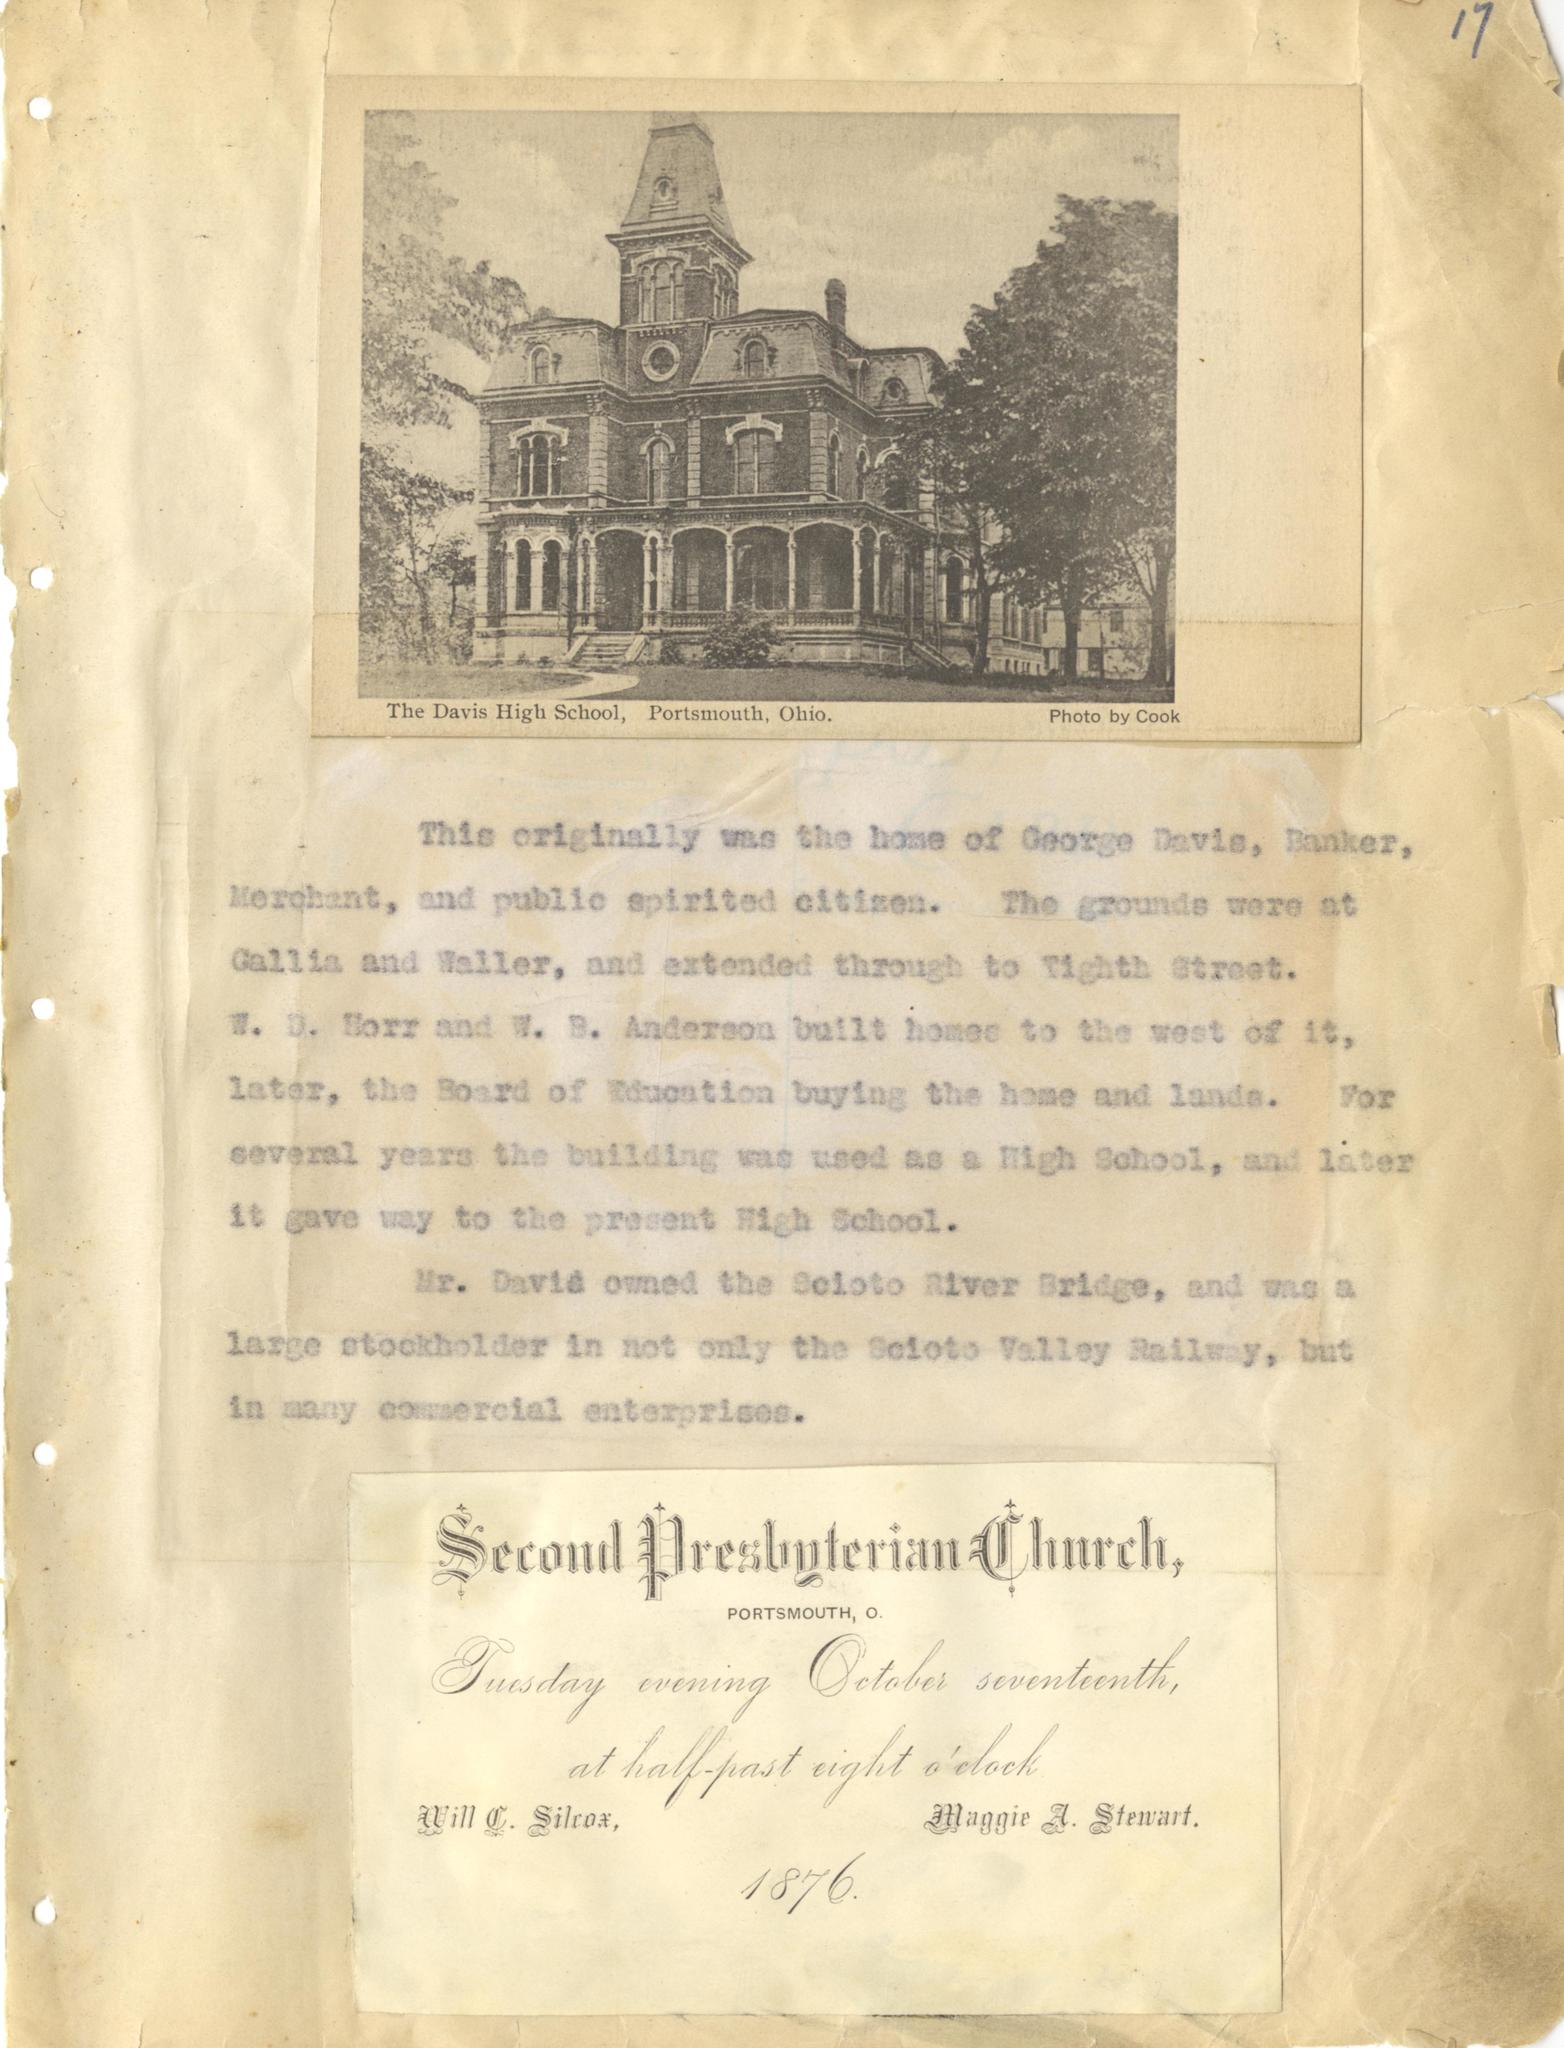 17
The Davis High School, Portsmouth, Ohio.
Photo by Cook
This originally was the home of George Davis, Banker,
Merchant, and public spirited citizen. The grounds were at
Gallia and Waller, and extended through to Tighth Street.
W. D. Horr and W. B. Anderson built homes to the west of it,
later, the Board of Education buying the home and lands. For
several years the building was used as a High School, and later
it gave way to the present High School.
Mr. David owned the Scioto River Bridge, and was a
large stockholder in not only the Scioto Valley Railway, but
in many commercial enterprises.
Second Presbyterian Church,
PORTSMOUTH, O.
Tuesday evening October seventeenth,
at half-past eight o'clock
Will C. Silcox, Maggie A. Stewart.
1876.